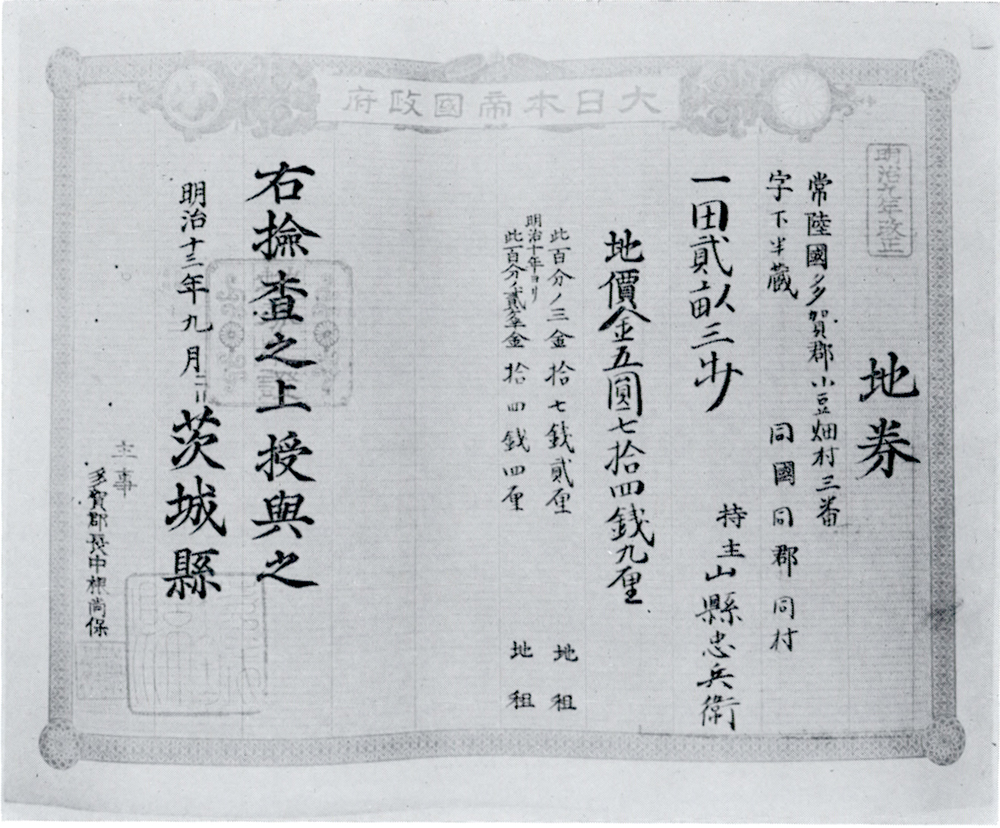 大日本帝國政府
明治九年改正
地券
常陸國多賀郡小豆畑村三番
字下半蔵
同國同郡同村
一田貳畝三歩
持主山縣忠兵衛
地價金五圓七拾四錢九厘
此百分ノ三金拾七錢貳厘 地租
明治十年ヨリ
此百分ノ貳ケ半金拾四錢四厘 地租
右撿査之上授與之
明治十三年九月二日
茨城縣
主事
多賀郡長中根尚保